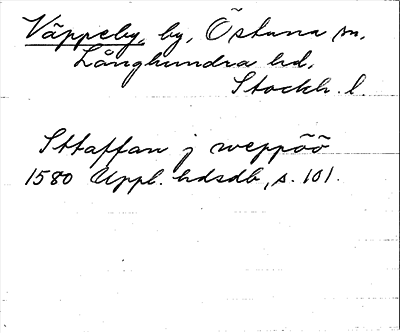 Väppeby, by, Östuna sn,
Långhundra hd,
Stockh. l.
Sttaffan j weppöö
1580 Uppl. hdsdb, s. 101.